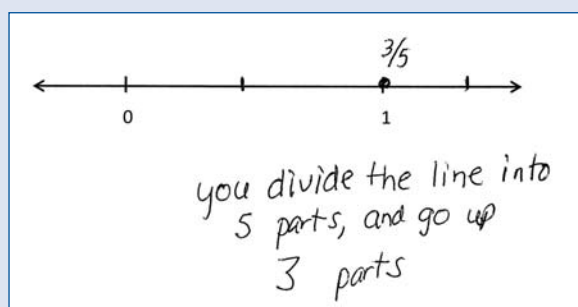 3/5
0 1
you divide the line into
5 parts, and go up
3 parts